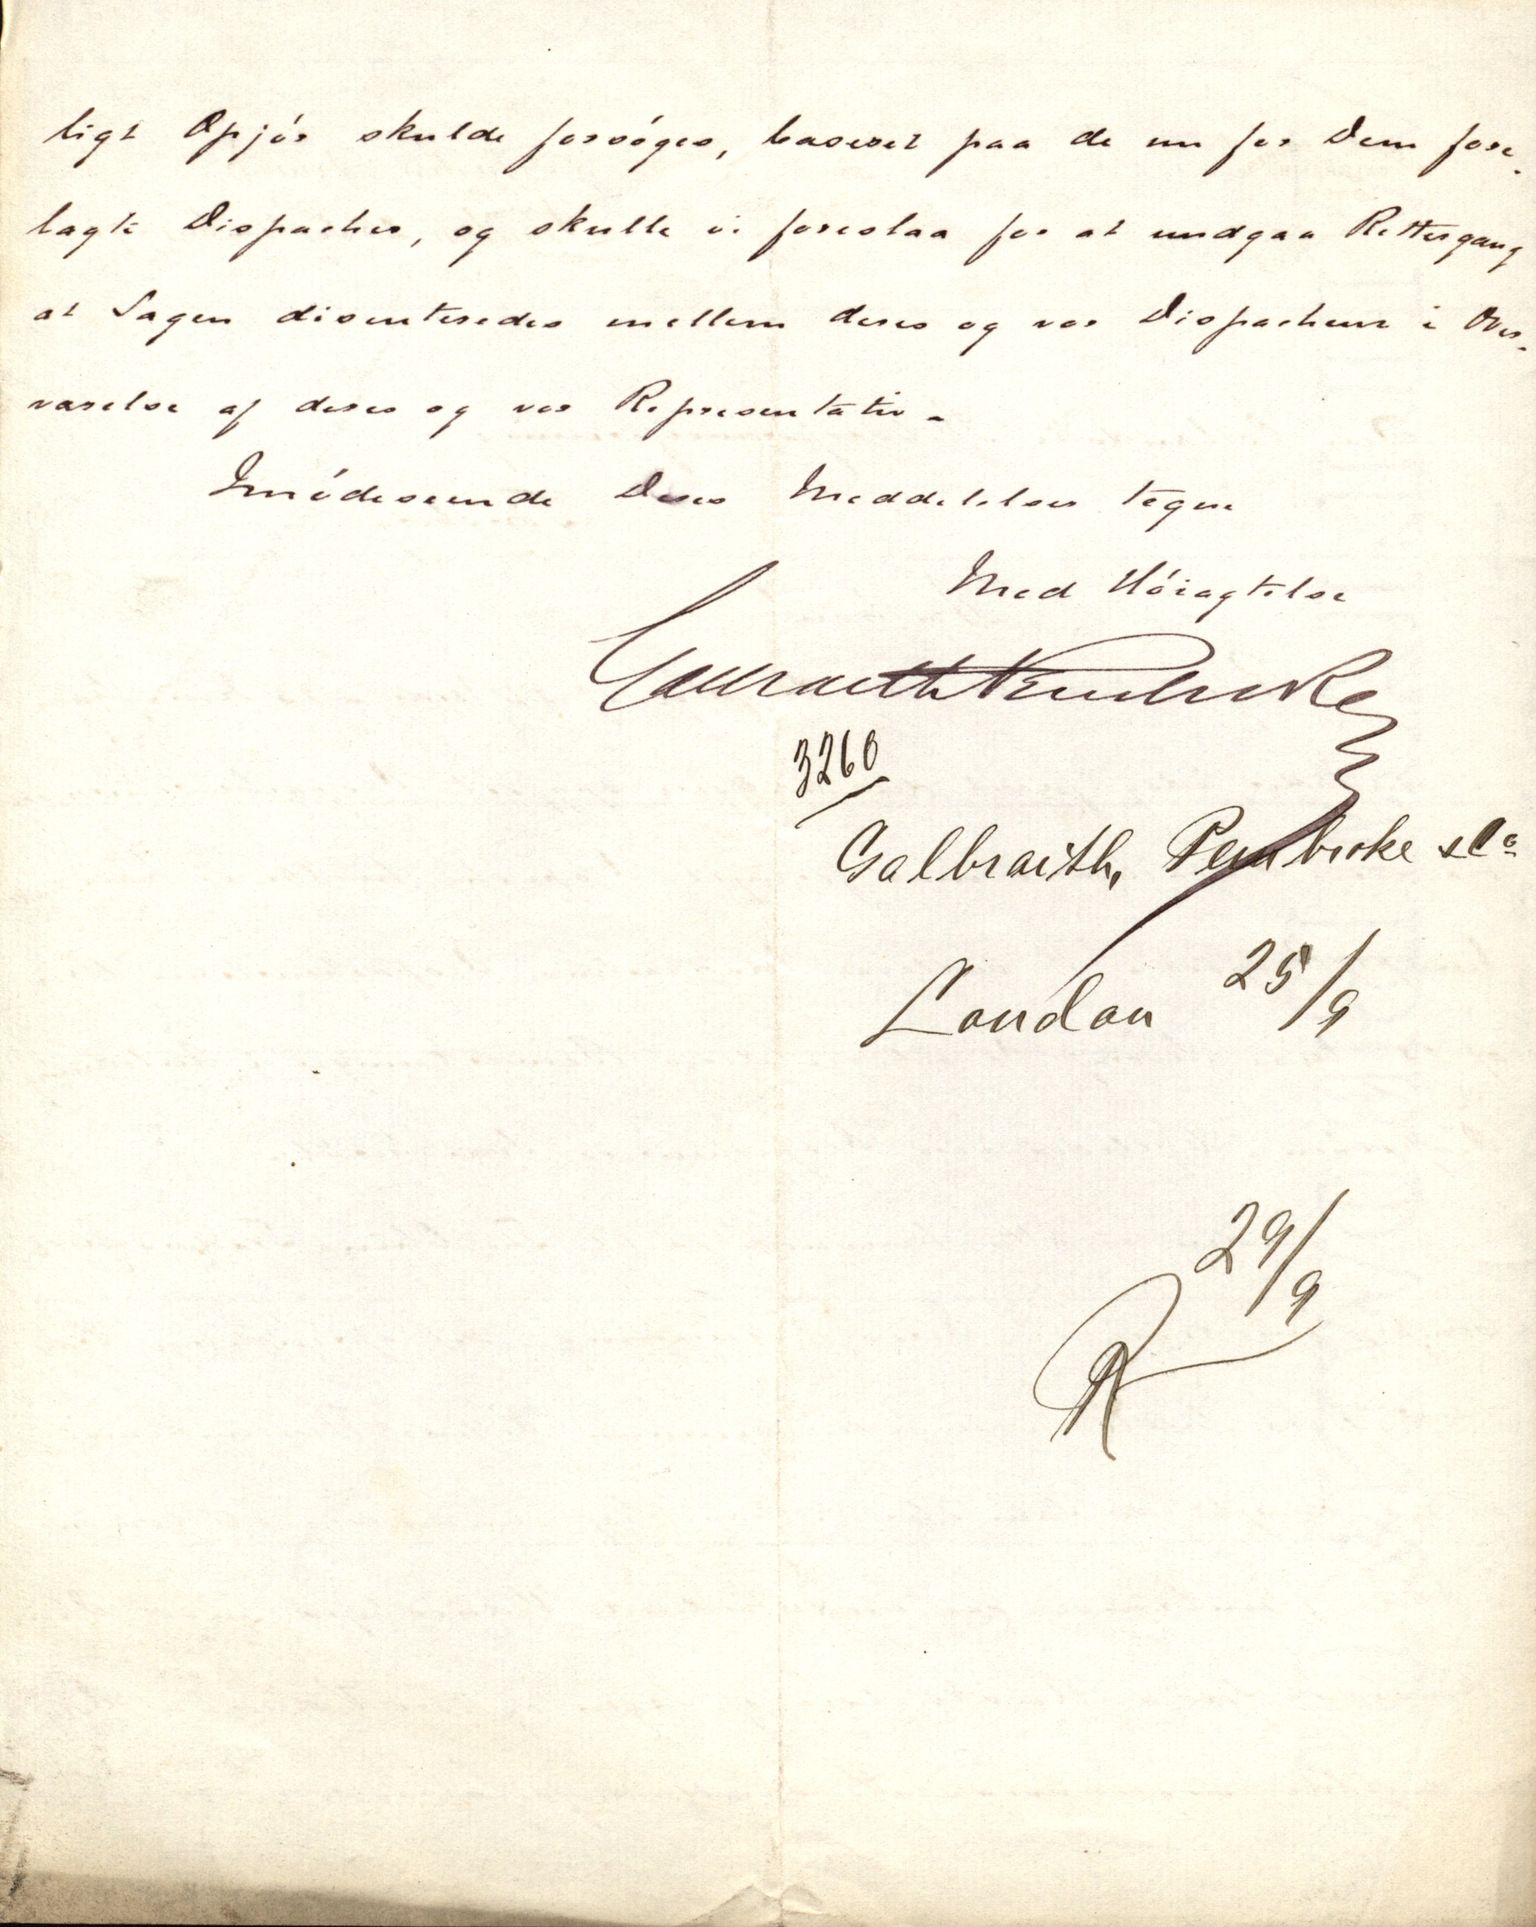 ligt Opjór skulde forsóges, baseret paa de nu for Dem fore-
lagte Dispacher, og skulle vi foreslaa for at undgaa Rettergang
at Sagen discuteredes mellem deres og vor Dispacheur i Over-
værelse af deres og vor Representativ -
Imódeseende Deres Meddelelser tegne
Med Hóiagtelse
Galbraith Pembroke
3260
Galbraith, Pembroke & Co
London 25/9
29/9
R